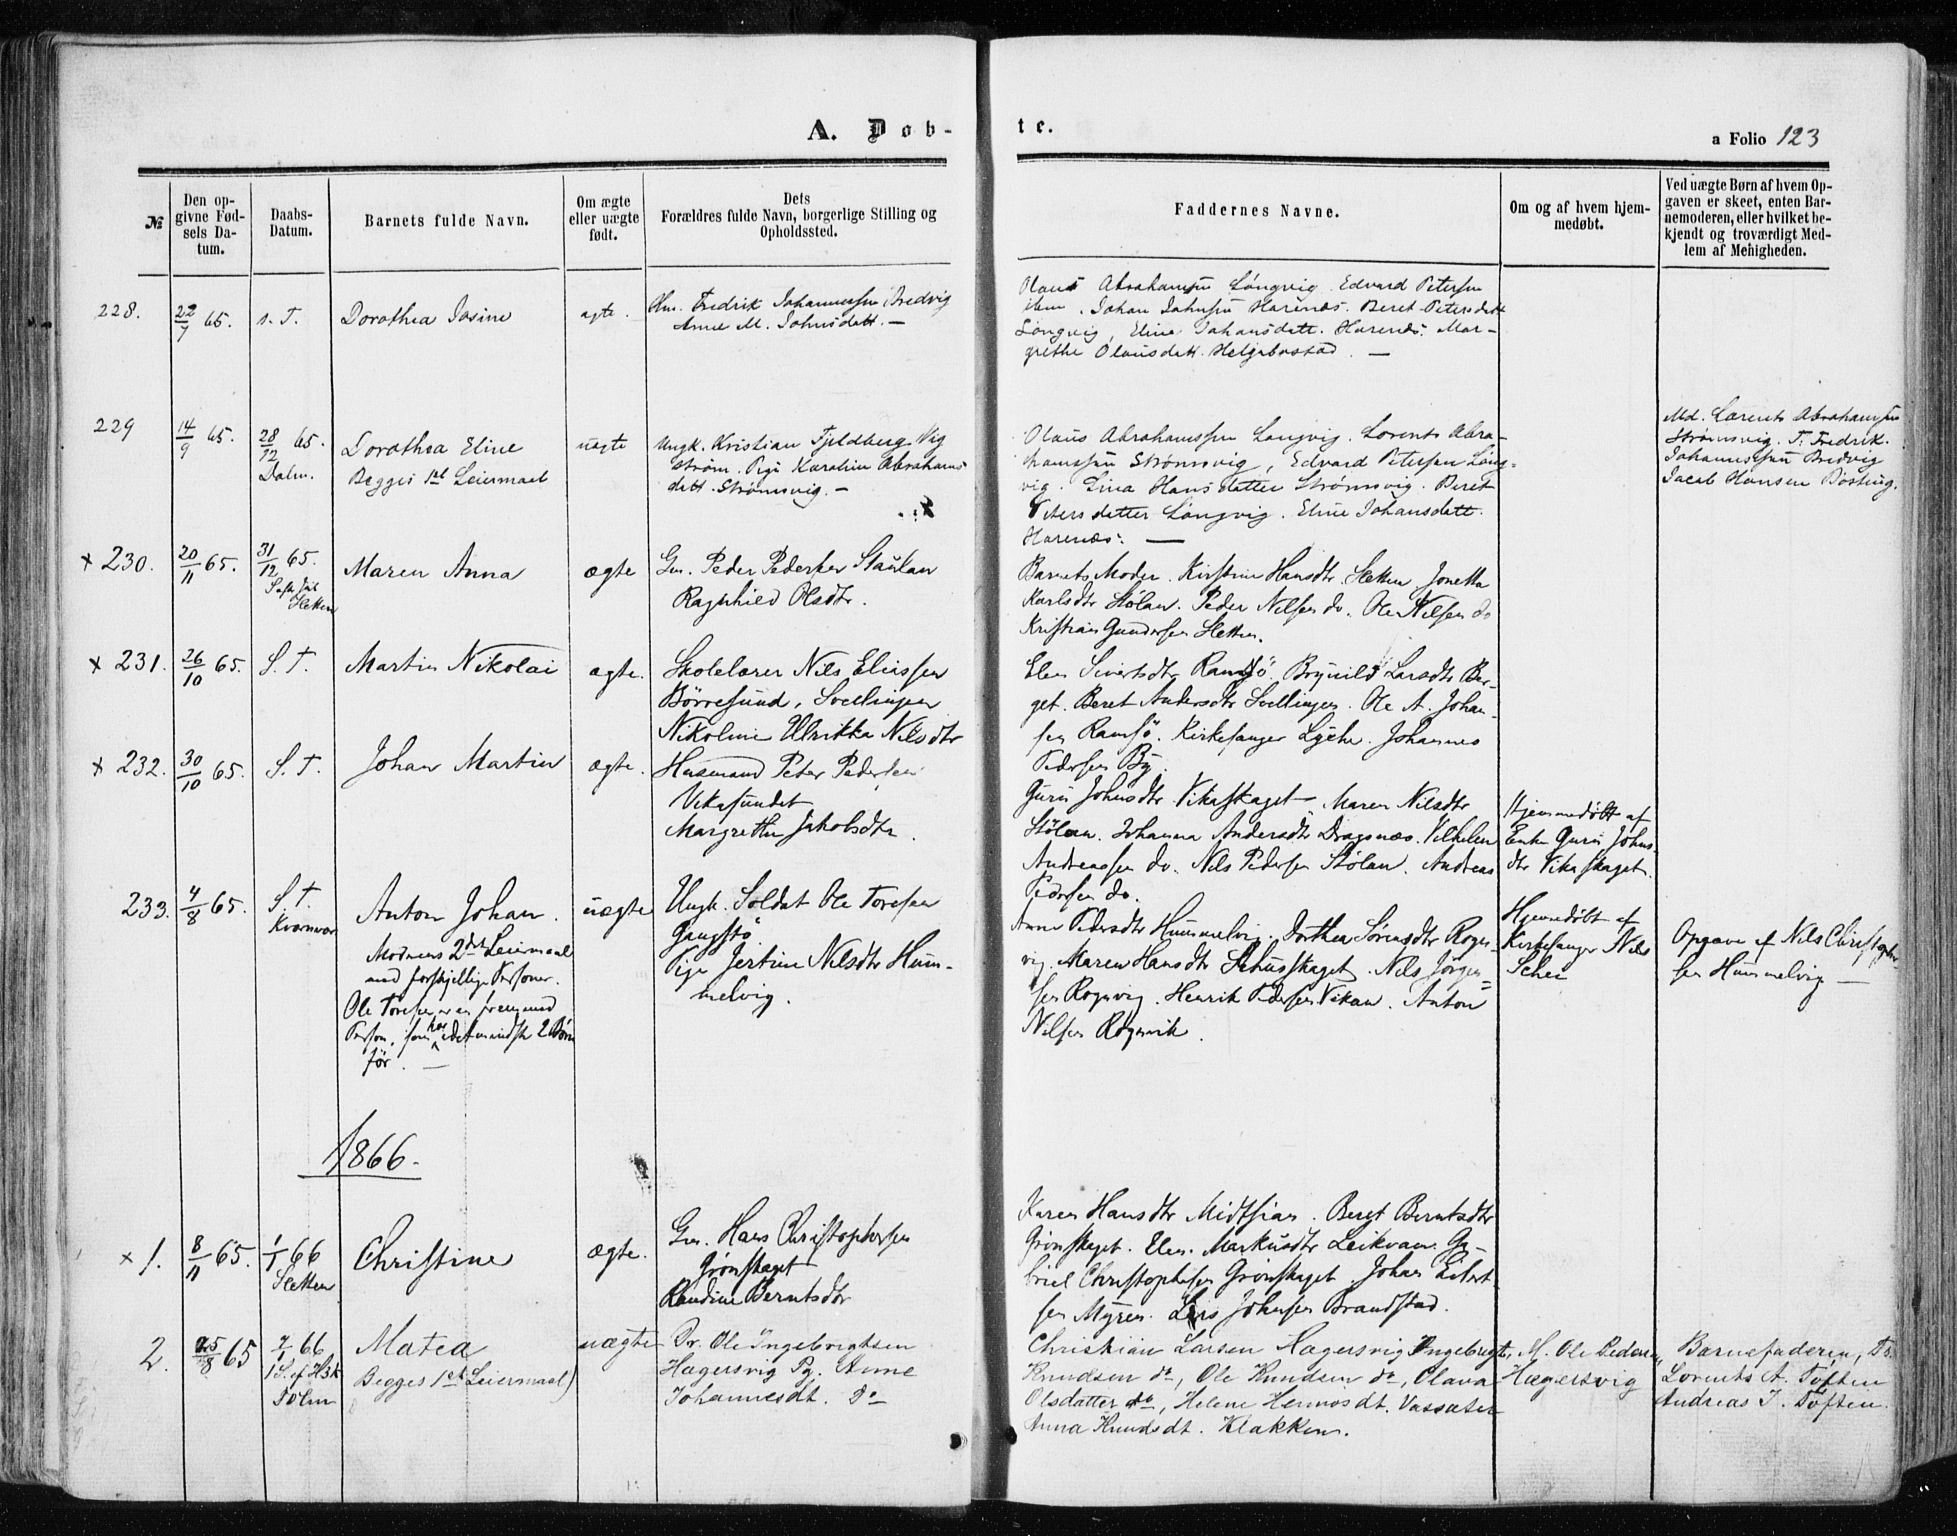 A. Døb-
te.
a Folio 123
№
Den op-
givne Fød-
sels Da-
tum.
Daabs-
Datum.
Barnets fulde Navn.
Om ægte
eller uægte
født.
Dets
Forældres fulde Navn, borgerlige Stilling og
Opholdssted.
Faddernes Navne.
Om og af hvem hjem-
medøbt.
Ved uægte Børn af hvem Op-
gaven er skeet, enten Bar-
nemoderen, eller hvilket be-
kjendt og troværdigt Med-
lem af Menigheden.
228.
22/9 65.
s. T.
Dorothea Josine
ægte.
Hm. Fredrik Johannessen Bredvig
Anne M. Johnsdatt. —
Olaus Abrahamsen Longvig. Edvard Petersen
ibm. Johan Johnsen Harenæs. Beret Petersdatt
Longvig, Eline Johansdatt. Harenæs. Mar-
grethe Olausdatt. Helgebostad. —
229
14/9 65.
28/12 65.
Dalm.
Dorothea Eline
Begges 1st Leiermaal
uægte
Ungk. Kristian Fjeldberg Vig
Strøm. Pige Karoline Abrahams
datt. Strømsvig. —
Olaus Abrahamssen Longvig. Lorents Abra-
hamssen Strømsvig, Edvard Petersen Long-
vig. Lina Hansdatter Strømsvig. Beret
Petersdatter Longvig. Eline Johansdatt.
Harenæs. —
Md. Lorents Abrahamssen
Strømsvig. F. Fredrik
Johannessen Bredvig
Jacob Hansen Bosting.
x 230.
20/11 65.
31/12 65.
Sletten
Maren Anna
ægte
Gm. Peder Pedersen Stølan
Ragnhild Olsdtr.
Barnets Moder. Kirstine Hansdtr Sletten. Jonetta
Karlsdtr Stølan. Peder Nilsen do. Ole Nilsen do
Kristian Gundersen Sletten.
x 231.
26/10 65.
S. T.
Martin Nikolai
ægte.
Skolelærer Nils Eliassen
Börrösund, Svellingen
Nikoline Ulrikka Nilsdtr
Elen Sivertsdtr Ramsö. Brynild Larsdtr Ber-
get. Beret Andersdtr Svellingen. Ole A. Johan-
sen Ramsö. Kirkesanger Lyche. Johannes
Pedersen By.
x 232.
30/10 65.
S. T.
Johan Martin
ægte.
Husmand Peter Pedersen
Vikasundet
Margrethe Jakobsdtr.
Guru Johnsdtr Vikaskaget. Maren Nilsdtr
Stölan. Johanna Andersdtr Dragsnæs. Vilhelm
Andreassen do. Nils Pedersen Stølan. Andreas
Pedersen do.
Hjemmedøbt af
Enke Guru Johns-
dtr Vikaskaget.
233.
4/8 65.
S. T.
Kvænvær
Anton Johan.
Moderens 2det Leiermaal
med forskjellige Personer.
Ole Toresen er en fremmed
Person, som har idetmindste 2 Börn
för. —
uægte
Ungk. Soldat Ole Toresen
Gangstö.
Pige Jertine Nilsdtr Hum-
melvig.
Anne Pedersdtr Hummelvig. Dorthea Sörensdtr Rogn-
vig. Maren Hansdtr Sehusskaget. Nils Jörgen-
sen Rognvig. Henrik Pedersen Vikan. Anton
Nilsen Rognvik.
Hjemmedøbt af
Kirkesanger Nils
Schei
Opgave af Nils Christopher-
sen Hummelvig —
1866.
x 1.
8/11 65.
1/1 66
Sletten
Christine
ægte.
Gm. Hans Christophersen
Grønskaget
Randine Berntsdtr
Karen Hansdtr Midtsian. Beret Berntsdtr
Grønskaget. Elen Markusdtr Leikvam. Ga-
briel Christophersen Grønskaget. Johan Eilert-
sen Myren. Lars Johnsen Brandstad.
2.
25/8 65
7/1 66
1 S. ef H3K
Dolm
Matea
Begges 1ste Leiermaal)
uægte
Dr. Ole Ingebrigtsen
Hægersvig Pg. Anne
Johannesdt. Do
Christian Larsen Hægersvig Ingebrigt
Knudsen do, Ole Knudsen do, Olava
Olsdatter do, Helene Hemosdt. Vassæter
Anna Knudsdt. Klakken.
M. Ole Pedersen
Hægersvig
Barnefaderen, Fs.
Lorents A. Toften
Andreas J. Toften.